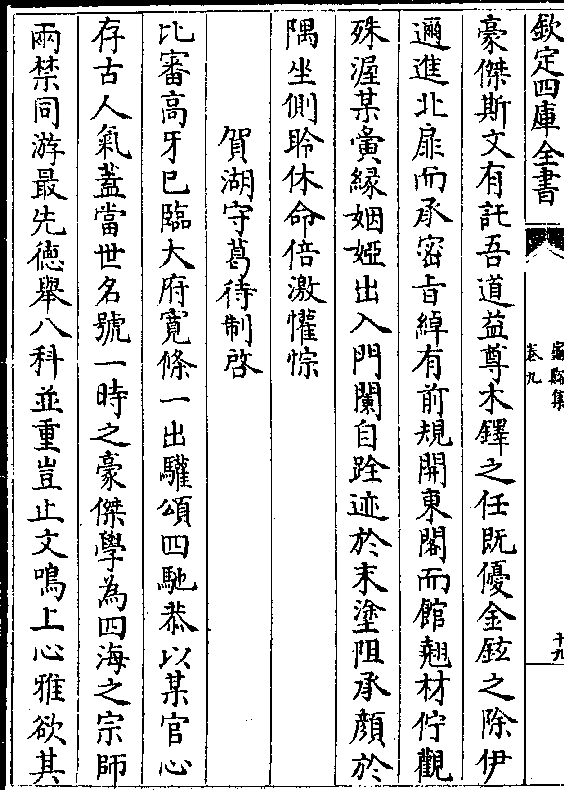 欽定四庫全書
卷九
十九
豪傑斯文有託吾道益尊木鐸之任既優金鉉之除伊
邇進北扉而承密旨綽有前規開東閣而館翹材佇觀
殊渥某夤緣姻婭出入門闌自跧迹於末塗阻承顔於
隅坐側聆休命倍激懽悰
賀湖守葛待制啓
比審高牙已臨大府寛條一出驩頌四馳恭以某官心
存古人氣蓋當世名號一時之豪傑學為四海之宗師
兩禁同游最先徳舉八科並重豈止文鳴上心雅欲其